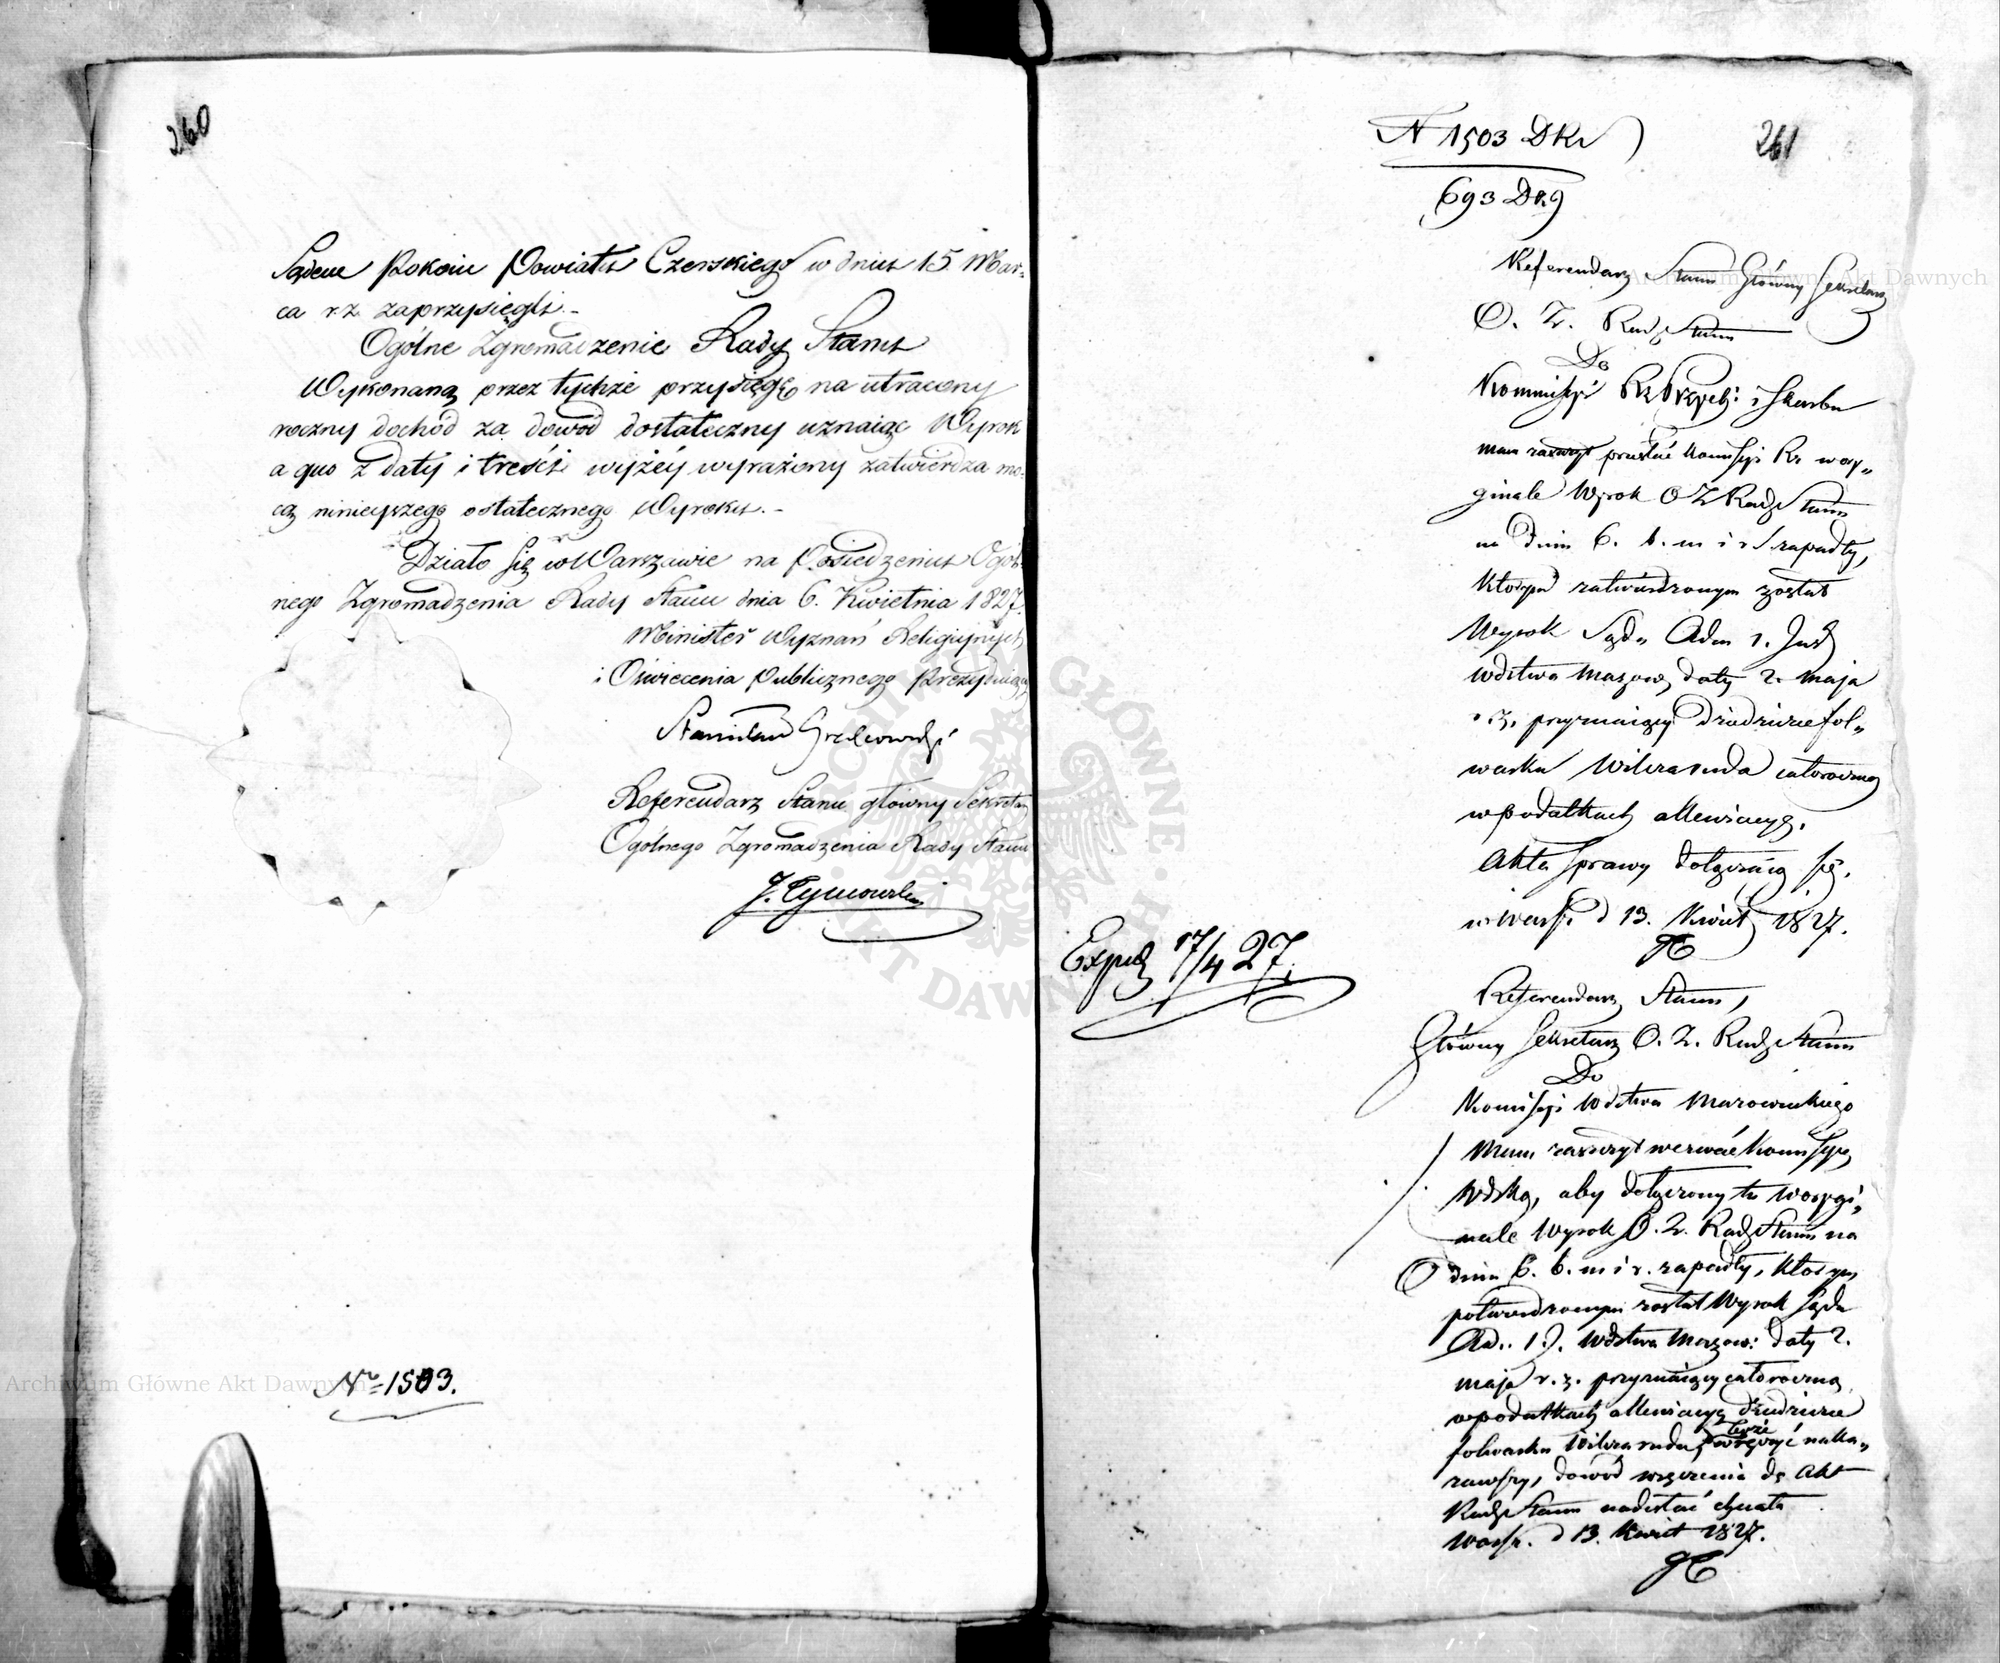 260
Sądem Pokoiu Powiatu Czerskiego w dniu 15. Mar=
ca r. z. zaprzysięgli.-
Ogólne Zgromadzenie Rady Stanu
Wykonaną przez tychże przysięgę na utracony
roczny dochód za dowód dostateczny uznaiąc Wyrok
a quo z daty i treści wyżéy wyrażony zatwierdza mo=
cą ninieyszego ostatecznego Wyroku.-
Działo się w Warszawie na Posiedzeniu Ogól=
nego Zgromadzenia Rady Stanu dnia 6. Kwietnia 1827.
Minister Wyznań Religijnych
i Oświecenia Publicznego Prezyduiący
Stanisław Grabowski
Referendarz Stanu główny Sekretarz
Ogólnego Zgromadzenia Rady Stanu
J. Tymowski
No 1503.
261
N 1503 DKr
693 Dz.g
Referendarz Stanu Główny Sekretarz
O. Z. Rady Stanu
Do
Kommissyi Rz Przych: i Skarbu
mam zaszczyt przesłać Komissyi Rz w ory„
ginale Wyrok O Z Rady Stanu
na dniu 6. b. m i r zapadły,
którym zatwierdzonym został
Wyrok Sądu Adm 1. Inst
wdztwa Mazow, daty 2. Maja
r. z, przyznaiący Dziedzicce fol„
warku Wilczaruda całoroczną
w podatkach allewiacyą.
Akta sprawy dołączaią się.
w Warsz. d 13. Kwiet 1827.
JT
Exped 17/4 27.
Referendarz Stanu,
Główny Sekretarz O. Z. Rady Stanu
Do
Komissyi Wdztwa Mazowieckiego
Mam zaszczyt wezwać Komissyą
Wdzką, aby dołączony tu w orygi„
nale Wyrok O. Z. Rady Stanu na
dniu 6. b. m i r. zapadły, którym
potwierdzonym został Wyrok Sądu
Ad.. 1 J. Wdztwa Mazow: daty 2.
maja r. z. przyznaiący całoroczną
w podatkach allewiacyą dziedzicce
folwarku Wilczaruda, teyże wręczyć naka„
zawszy, dowód wręczenia do Akt
Rady Stanu nadesłać chciała
Warsz. d 13. Kwiet 1827.
JT
Archiwum Główne Akt Dawnych
Archiwum Główne Akt Dawnych
ARCHIWUM GŁÓWNE AKT DAWNYCH